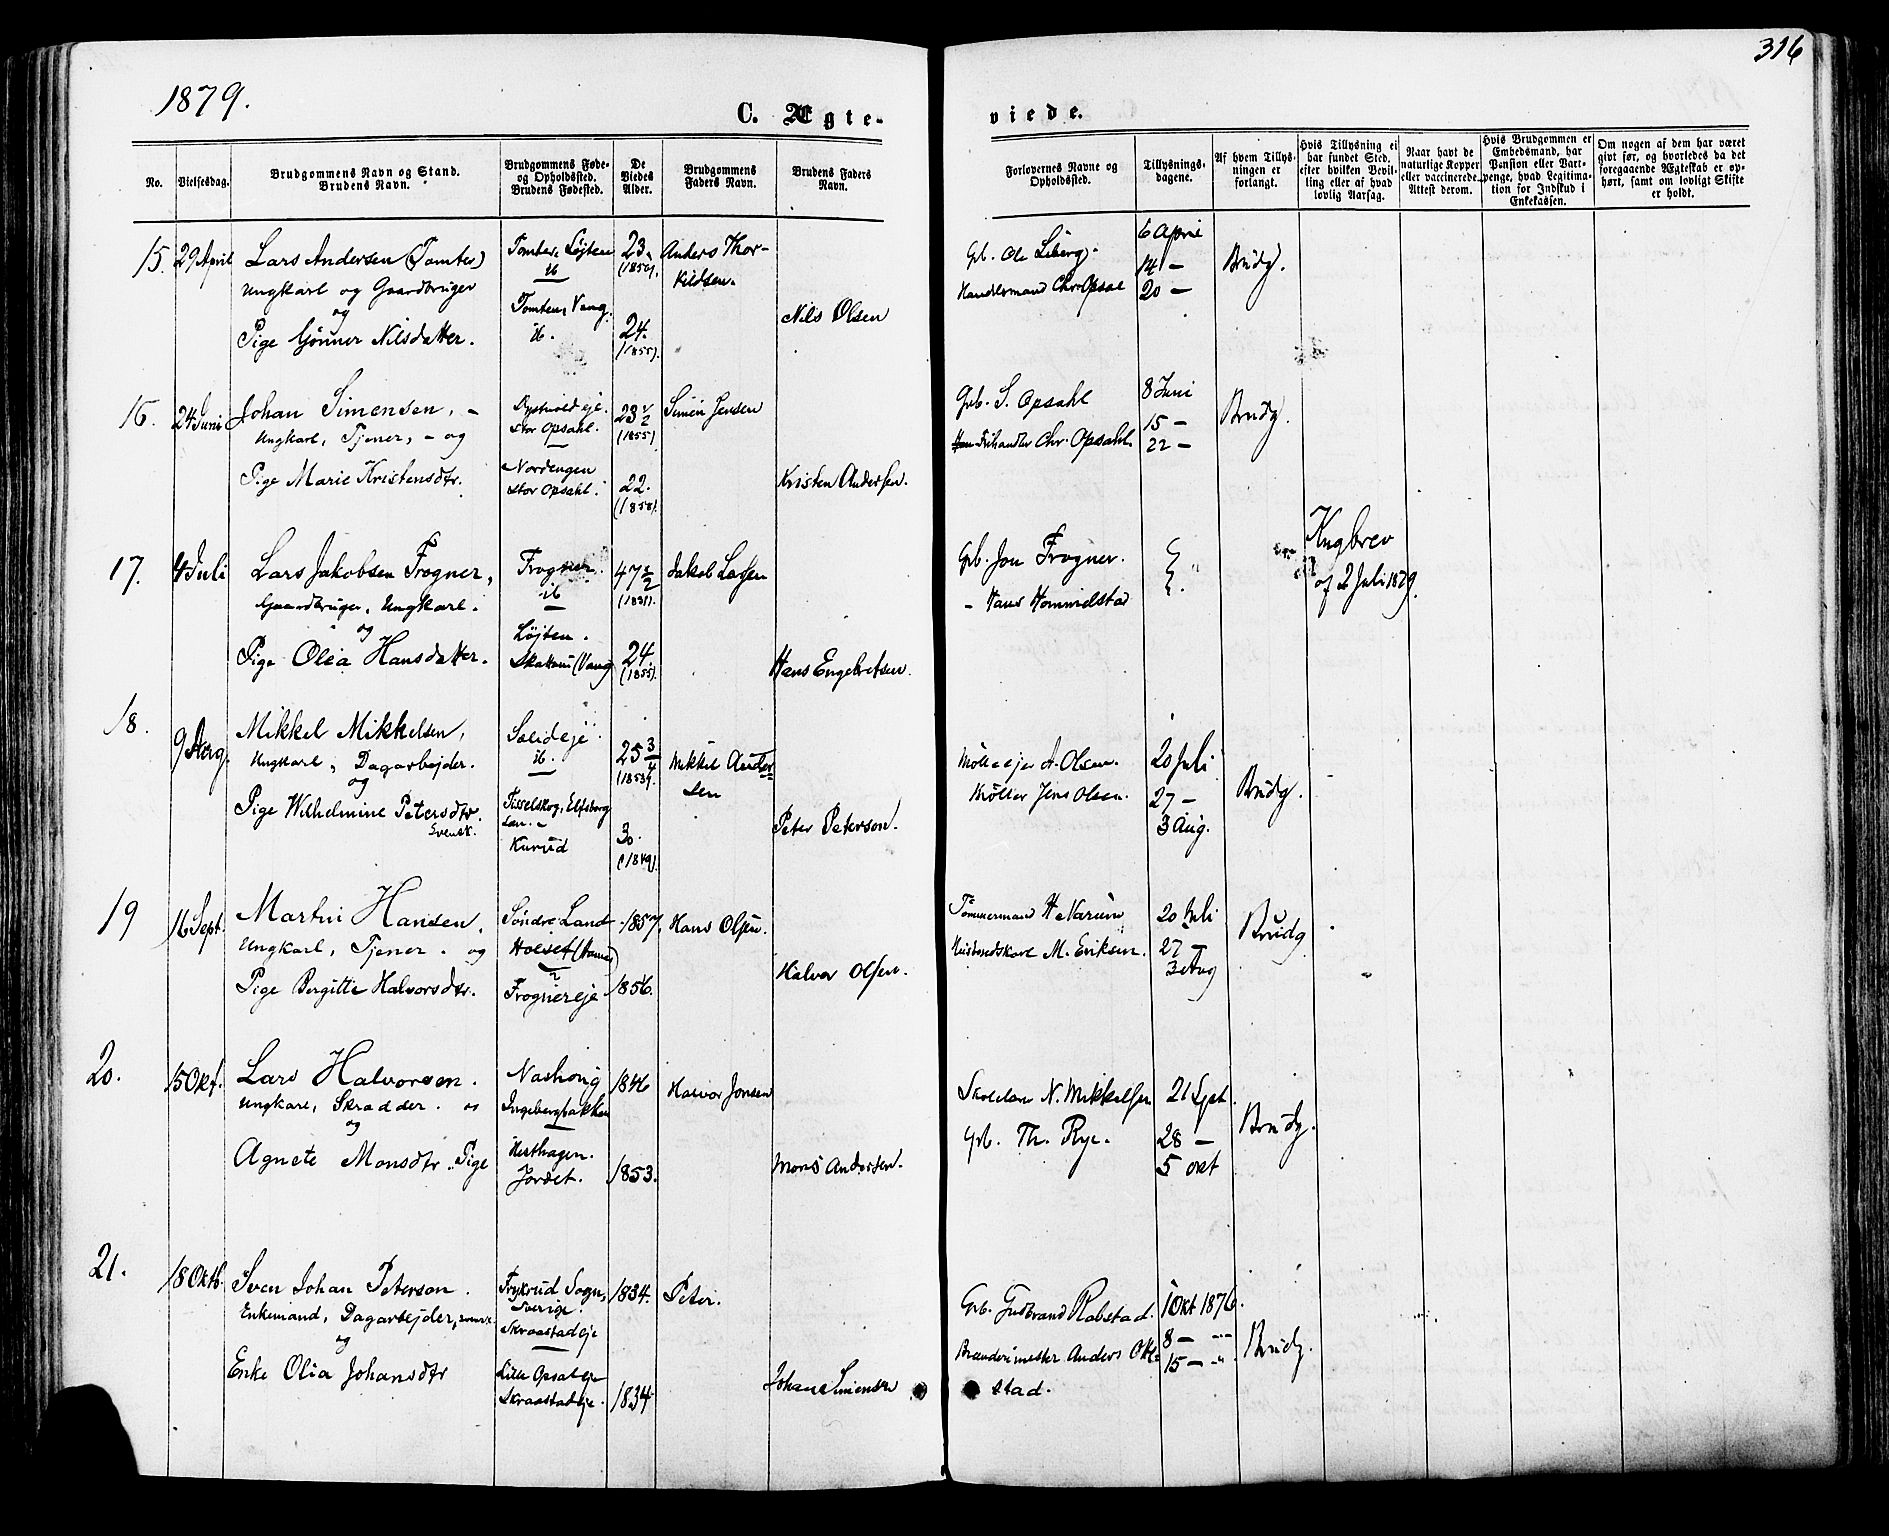 316
1879.
C. Ægte-
viede.
No.
Vielsesdag.
Brudgommens Navn og Stand.
Brudens Navn.
Brudgommens Føde-
og Opholdssted.
Brudens Fødested.
De
Viedes
Alder.
Brudgommens
Faders Navn.
Brudens Faders
Navn.
Forlovernes Navne og
Opholdssted.
Tillysnings-
dagene.
Af hvem Tillys-
ningen er
forlangt.
Hvis Tillysning ei
har fundet Sted,
efter hvilken Bevil-
ling eller af hvad
lovlig Aarsag.
Naar havt de
naturlige Kopper
eller vaccinerede.
Attest derom.
Hvis Brudgommen er
Embedsmand, har
Pansion eller Vart-
penge, hvad Legitima-
tion for Indskud i
Enkekassen.
Om nogen af dem har været
givt før, og hvorledes da det
foregaaende Ægteskab er op-
hørt, samt om lovligt Skifte
er holdt.
15.
29 April
Lars Andersen (Tomter)
Ungkarl og Gaardbruger
og
Pige Gønner Nilsdatter.
Tomter, Løjten
ib
Tomten, Vang.
ib.
23.
(1856).
24.
(1855).
Anders Thor-
kildsen.
Nils Olsen
Gb. Ole Liberg.
Handelsmand Chr. Opsal
6 April
14 –
20 –
Brudg.
16.
24 Juni
Johan Simensen, –
Ungkarl, Tjener, – og
Pige Marie Kristensdtr.
eje.
Stor Opsahl.
Nordengen
Stor Opsahl.
23 1/2
(1855)
22.
(1858).
Simen Jensen
Kristen Andersen.
Grb. S. Opsahl
Frihandler Chr. Opsahl.
8 Juni
15 –
22 –
Brudg.
17.
4 Juli
Lars Jakobsen Frogner,
Gaardbruger, Ungkarl.
og
Pige Olea Hansdatter.
Frogner.
ib
Løjten.
(Vang)
47 1/2
(1831).
24.
(1855).
Jakob Larsen
Hans Engebretsen.
Grb. Jon Frogner.
– Hans Hommelstad
Kngbrev
af 2 Juli 1879.
18.
9 Aug.
Mikkel Mikkelsen,
Ungkarl, Dagarbejder.
og
Pige Wilhelmine Petersdtr.
Svensk.
Sælid eje.
ib.
Tisselskog, Elfsborg
Län. –
Kurud
25 3/4
(1853).
30.
(1849).
Mikkel Ander
sen
Peter Peterson.
Mølleejer A. Olsen.
Møller Jens Olsen.
20 Juli
27 –
3 Aug.
Brudg.
19
16 Sept.
Martin Hansen.
Ungkarl, Tjener. og
Pige Bergitte Halvorsdtr.
Søndre Land
Holset (Hamar)
Frognereje
1857.
1856.
Hans Olsen.
Halvor Olsen.
Tømmermand H. Narum
Husmandskarl M. Eriksen.
20 Juli
27 –
3 Aug
Brudg
20.
15 Okt.
Lars Halvorsen.
Ungkarl, Skrædder.
og
Agnete Monsdtr. Pige
Nashoug
Ingebergbakken
Hesthagen.
Jordet.
1846
1853.
Halvor Jonsen
Mons Andersen.
Skolelær N. Mikkelsen
Grb. Th. Rye.
21 Sept.
28 –
5 Okt
Brudg.
21.
18 Oktb.
Sven Johan Peterson.
Enkemand, Dagarbejder, svensk
og
Enke Olia Johansdtr
Frykrud Sogn,
Sverige.
Skraastadeje
Lille Opsaleje
Skraastadeje.
1834.
1834.
Peter.
Johan Simensen
Grb. Gudbrand Rabstad.
Brænderimester Anders Okl=
stad.
1 Okt 1876.
8 – "
15 – "
Brudg.